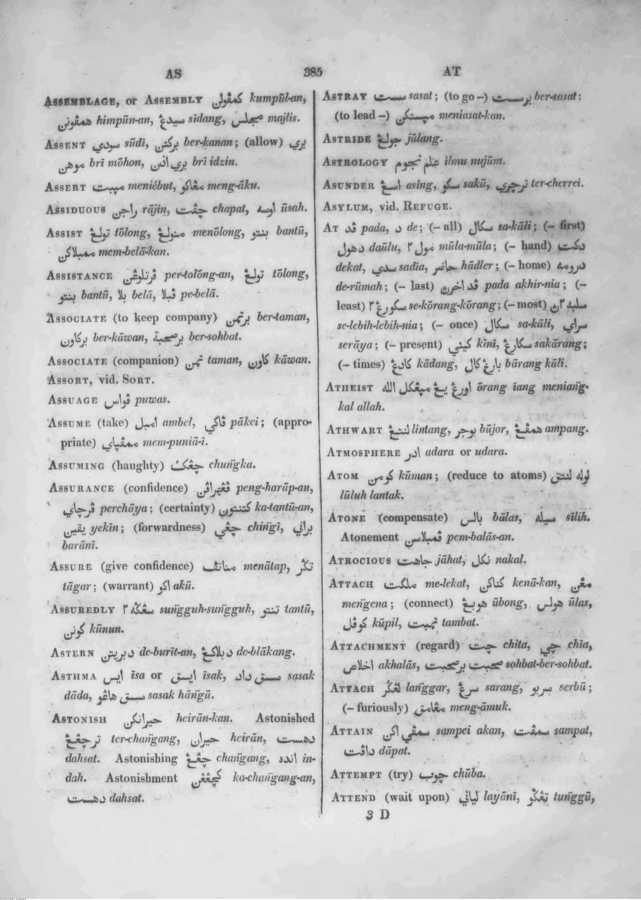 AS
385
AT
ASSEMBLAGE, or ASSEMBLY كمڤولن kumpūl-an,
همڤونن himpūn-an, سيدڠ sidang, مجلس majlis.
ASSENT سودي sūdi, بركنن ber-kanan; (allow) بري
موهن brī mōhon, بري اذن brī idzin.
ASSERT مڽبت meniébut, مڠاكو meng-āku.
ASSIDUOUS راجن rājin, چڤت chapat, اوسه ūsah.
ASSIST تولڠ tōlong, منولڠ menōlong, بنتو bantū,
ممبلاكن mem-belā-kan.
ASSISTANCE ڤرتلوڠن per-tolōng-an, تولڠ tōlong,
بنتو bantū, بلا belā, ڤبلا pe-belā.
ASSOCIATE (to keep company) برتمن ber-taman,
بركاون ber-kāwan, برصحبة ber-sohbat.
ASSOCIATE (companion) تمن taman, كاون kāwan.
ASSORT, vid. SORT.
ASSUAGE ڤواس puwas.
ASSUME (take) امبل ambel, ڤاكي pākei; (appro-
priate) ممڤياي mem-puniā-i.
ASSUMING (haughty) چڠك chungka.
ASSURANCE (confidence) ڤڠهراڤن peng-harāp-an,
ڤرچاي perchāya; (certainty) كتنتون ka-tantū-an,
يقين yekīn; (forwardness) چڠي chingī, براني
barānī.
ASSURE (give confidence) مناتڤ menātap, تڬر
tāgar; (warrant) اكو akū.
ASSUREDLY سڠڬه٢ sungguh-sungguh, تنتو tantū,
كونن kūnun.
ASTERN دبريتن de-burīt-an, دبلاكڠ de-blākang.
ASTHMA ايس īsa or ايسق īsak, سسق داد sasak
dāda, سسق هاڠو sasak hāngū.
ASTONISH حيرانكن heirān-kan. Astonished
ترچڠڠ ter-changang, حيران heirān, دهست
dahsat. Astonishing چڠڠ changang, انده in-
dah. Astonishment كچڠڠن ka-changang-an,
دهست dahsat.
ASTRAY سست sasat; (to go –) برسست ber-sasat:
(to lead –) مڽستكن meniasat-kan.
ASTRIDE جولڠ jūlang.
ASTROLOGY علم نجوم ilmu nujūm.
ASUNDER اسڠ asing, سكو sakū, ترچري ter-cherrei.
ASYLUM, vid. REFUGE.
AT ڤد pada, د de; (– all) سكال sa-kāli; (– first)
دهول daūlu, مول٢ mūla-mūla; (– hand) دكت
dekat, سدي sadia, حاضر hādler; (– home) درومه
de-rūmah; (– last) ڤد اخرن pada akhir-nia; (–
least) سكورڠ٢ se-kōrang-kōrang; (– most) سلبه٢ن
se-lebih-lebih-nia; (– once) سكال sa-kāli, سراي
serāya; (– present) كيني kīnī, سكارڠ sakārang;
(– times) كادڠ kādang, بارڠ كال bārang kāli.
ATHEIST اورڠ يڠ مڽڠكل الله ōrang iang meniang-
kal allah.
ATHWART لنتڠ lintang, بوجر būjor, همڤڠ ampang.
ATMOSPHERE ادر adara or udara.
ATOM كومن kūman; (reduce to atoms) لوله لنتق
lūluh lantak.
ATONE (compensate) بالس bālas, سيله sīlih.
Atonement ڤمبلاسن pem-balās-an.
ATROCIOUS جاهت jāhat, نكل nakal.
ATTACH ملكت me-lekat, كناكن kenā-kan, مڠن
mengena; (connect) هوبڠ ūbong, هولس ūlas,
كوڤل kūpil, تمبت tambat.
ATTACHMENT (regard) چت chita, چي chia,
اخلاص akhalās, صحبت برصحبت sohbat-ber-sohbat.
ATTACH لڠڬر langgar, سرڠ sarang, سربو serbū;
(– furiously) مڠامق meng-āmuk.
ATTAIN سمڤي اكن sampei akan, سمڤت sampat,
داڤت dāpat.
ATTEMPT (try) چوب chūba.
ATTEND (wait upon) لياني layānī, تڠڬو tunggū,
3 D